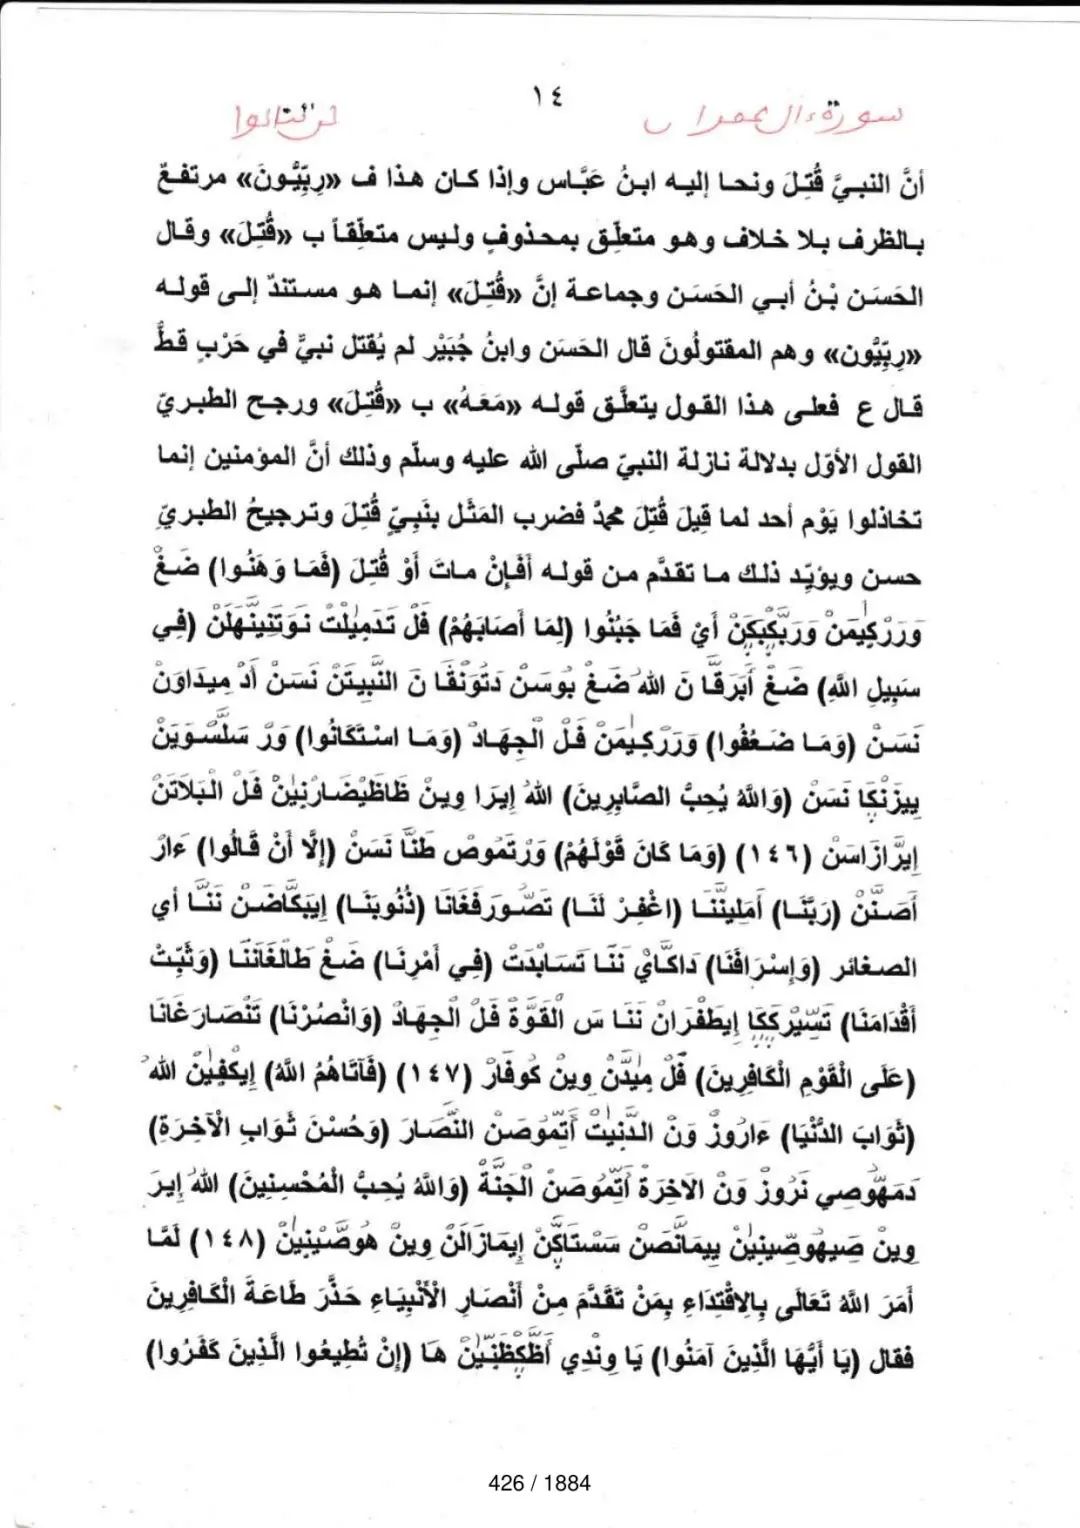 ١٤
سورة ءال عمران
لن تنالوا
أنَّ النبيَّ قُتِلَ ونحا إليه ابنُ عَبَّاس وإذا كان هذا ف «رِبِّيُّونَ» مرتفعٌ
بالظرف بلا خلاف وهو متعلّق بمحذوفٍ وليس متعلّقاً ب «قُتِلَ» وقال
الحَسَن بْنُ أبي الحَسَن وجماعة إنَّ «قُتِلَ» إنما هو مستندٌ إلى قوله
«رِبِّيُّون» وهم المقتولُونَ قال الحَسَن وابنُ جُبَيْر لم يُقتل نبيٌّ في حَرْبٍ قطُّ
قال ع فعلى هذا القول يتعلَّق قوله «مَعَهُ» ب «قُتِلَ» ورجح الطبريّ
القول الأوّل بدلالة نازلة النبيّ صلّى الله عليه وسلّم وذلك أنَّ المؤمنين إنما
تخاذلوا يَوْم أحد لما قِيلَ قُتِلَ محمدٌ فضرب المَثَل بنَبِيّ قُتِلَ وترجيحُ الطبريّ
حسن ويؤيّد ذلك ما تقدَّم من قوله أَفَإِنْ ماتَ أَوْ قُتِلَ (فَمَا وَهَنُوا) ضَغْ
وَرَرْكِيمَنْ وَرَبَّكْبَكَنْ أيْ فَمَا جَبُنُوا (لِمَا أَصَابَهُمْ) فَلْ تَدَمِيلْتْ نَوَتَنِينَّهَلَنْ (فِي
سَبِيلِ اللَّهِ) ضَغْ أَبَرقَّا نَ اللهْ ضَغْ بُوسَنْ دَتُونْفَا نَ النَّبِيتَنْ نَسَنْ أَدْ مِيدَاوَنْ
نَسَنْ (وَمَا ضَعُفُوا) وَرَرْكِيمَنْ فَلْ الْجِهَادْ (وَمَا اسْتَكَانُوا) وَرْ سَلْسَوَيَنْ
يِيزَنْكَا نَسَنْ (وَاللَّهُ يُحِبُّ الصَّابِرِينَ) اللهْ إِيرَا وِينْ ظَاظَيْضَارْنِينْ فَلْ الْبَلَاتَنْ
إِيرَّازَاسَنْ (١٤٦) (وَمَا كَانَ قَوْلَهُمْ) وَرْتَمُوصْ طَنَّا نَسَنْ (إِلَّا أَنْ قَالُوا) ءَارْ
أَصَنَّنْ (رَبَّنَا) أَمَلِينَّنَا (اغْفِرْ لَنَا) تَصُّورَفَغَانَا (ذُنُوبَنَا) إِيبَكَّاضَنْ نَنَّا أي
الصغائر (وَإِسْرَافَنَا) دَاكَّايْ نَنَّا تَسَابْدَتْ (فِي أَمْرِنَا) ضَغْ طَالْغَاتَنَّا (وَثَبِّتْ
أَقْدَامَنَا) تَسِّيْرَكَكَا إِيطَفْرَانْ نَنَا سَ الْقَوَّةْ فَلْ الْجِهَادْ (وَانْصُرْنَا) تَنْصَارَغَانَا
(عَلَى الْقَوْمِ الْكَافِرِينَ) فَلْ مِيدَّنْ وِينْ كُوفَارْ (١٤٧) (فَآتَاهُمُ اللَّهُ) إِيكْفِينْ اللهْ
(ثَوَابَ الدُّنْيَا) ءَارُوزْ وَنْ الدَّنِيتْ أَتِّمُوصَنْ النَّصَارَ (وَحُسْنَ ثَوَابِ الْآخِرَةِ)
دَمَهُّوصِي نَرُوزْ وَنْ الآخِرَةْ أَتِّمُوصَنْ الْجَنَّةْ (وَاللَّهُ يُحِبُّ الْمُحْسِنِينَ) اللهْ إِيرَ
وِينْ صَيهُوصِّينِينْ يِيمَانَّصَنْ سَسْتَاكَّنْ إِيمَازَالَنْ وِينْ هُوصَّيْنِينْ (١٤٨) لَمَّا
أَمَرَ اللَّهُ تَعَالَى بِالِاقْتِدَاءِ بِمَنْ تَقَدَّمَ مِنْ أَنْصَارِ الْأَنْبِيَاءِ حَذَّرَ طَاعَةَ الْكَافِرِينَ
فقال (يَا أَيُّهَا الَّذِينَ آمَنُوا) يَا وِنْدِي أَظَّكْظَنِّينْ هَا (إِنْ تُطِيعُوا الَّذِينَ كَفَرُوا)
426 / 1884